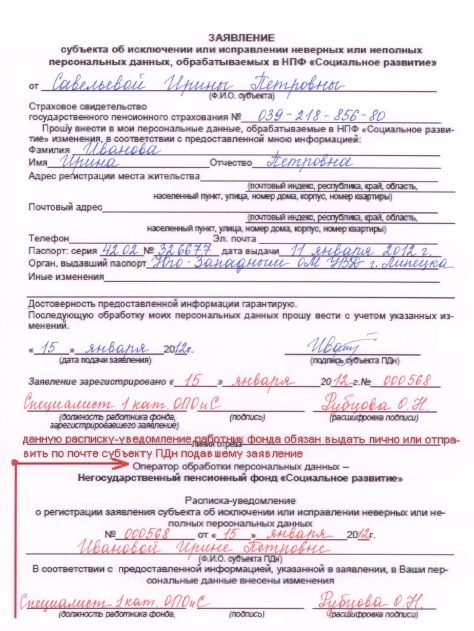 ЗАЯВЛЕНИЕ
субъекта об исключении или исправлении неверных или неполных
персональных данных, обрабатываемых в НПФ «Социальное развитие»
от Савельевой Ирины Петровны
(Ф.И.О. субъекта)
Страховое свидетельство
государственного пенсионного страхования № 039-218-856-80
Прошу внести в мои персональные данные, обрабатываемые в НПФ «Социальное разви-
тие» изменения, в соответствии с предоставленной мною информацией:
Фамилия Иванова
Имя Ирина Отчество Петровна
Адрес регистрации места жительства
(почтовый индекс, республика, край, область,
населенный пункт, улица, номер дома, корпус, номер квартиры)
Почтовый адрес
(почтовый индекс, республика, край, область,
населенный пункт, улица, номер дома, корпус, номер квартиры)
Телефон Эл. почта
Паспорт: серия 42 02 № 326677 дата выдачи 11 января 2012 г.
Орган, выдавший паспорт Юго-Западным ОМ УВД г. Липецка
Иные изменения
Достоверность предоставленной информации гарантирую.
Последующую обработку моих персональных данных прошу вести с учетом указанных из-
менений.
« 15 » января 2012г.
(дата подачи заявления) (подпись субъекта ПДн)
Заявление зарегистрировано « 15 » января 2012 г.№ 000568
Специалист 1 кат. ОПОиС Рубцова О.Н.
(должность работника фонда, (подпись) (расшифровка подписи)
зарегистрировавшего заявление)
линия отреза
данную расписку-уведомление работник фонда обязан выдать лично или отпра-
вить по почте субъекту ПДн подавшему заявление
Оператор обработки персональных данных –
Негосударственный пенсионный фонд «Социальное развитие»
Расписка-уведомление
о регистрации заявления субъекта об исключении или исправлении неверных или не-
полных персональных данных
№ 000568 от « 15 » января 2012г.
Ивановой Ирине Петровне
(Ф.И.О. субъекта ПДн)
В соответствии с предоставленной информацией, указанной в заявлении, в Ваши пер-
сональные данные внесены изменения
Специалист 1 кат. ОПОиС Рубцова О.Н.
(должность работника фонда, (подпись) (расшифровка подписи)